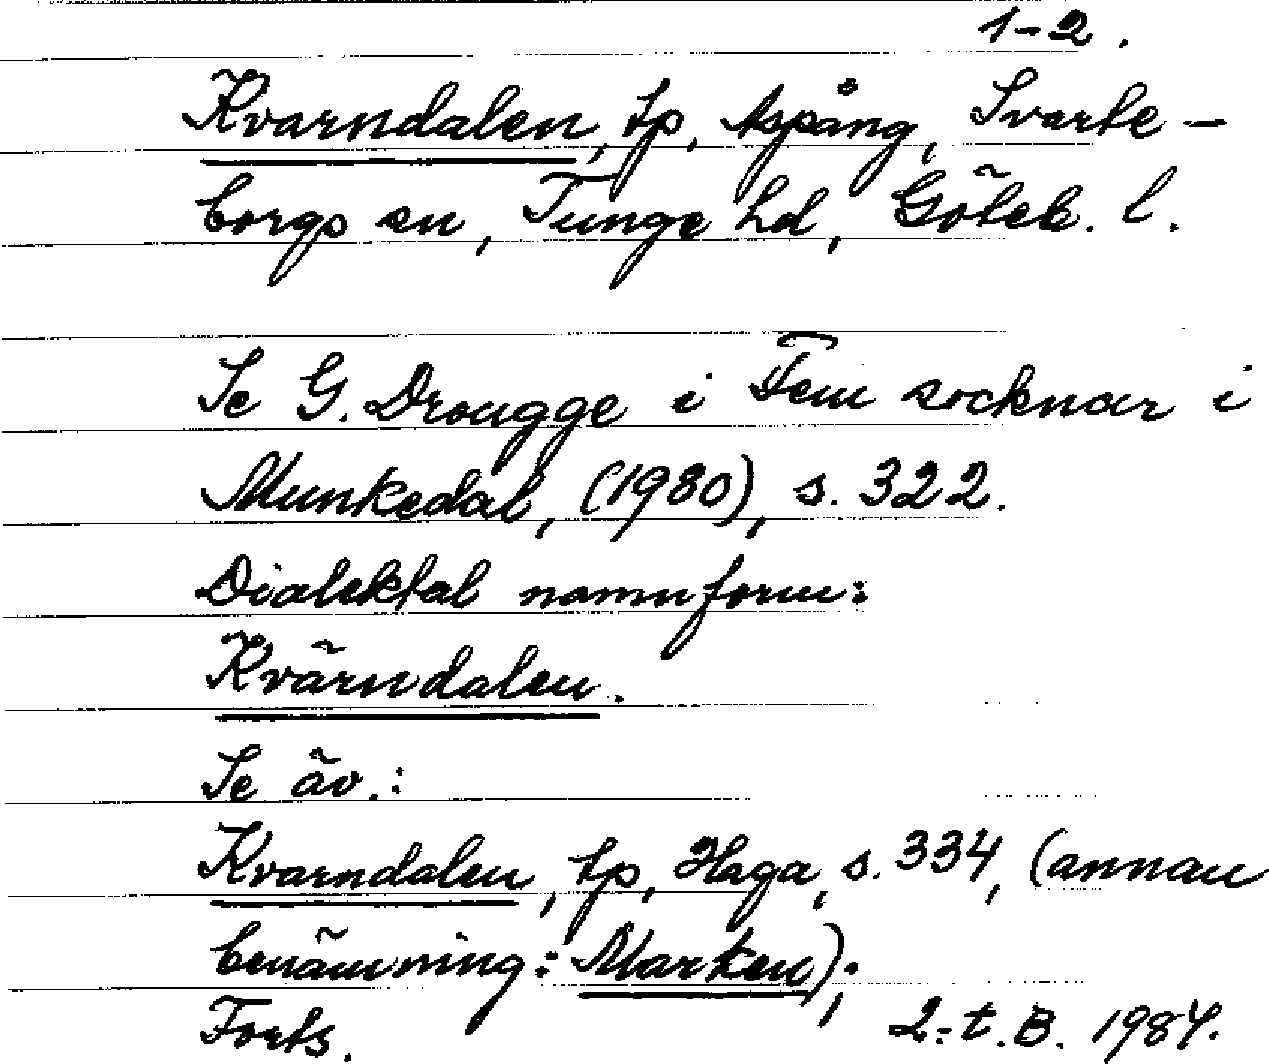 1-2.
Kvarndalen, tp, Aspäng, Svarte-
borgs sn, Tunge hd, Göteb. l.
Se G. Drougge i Fem socknar i
Munkedal, (1980), s. 322.
Dialektal namnform:
Kvärndalen.
Se äv.:
Kvarndalen, tp, Haga, s. 334, (annan
benämning: Marken);
Forts. 2:t.B. 1984.